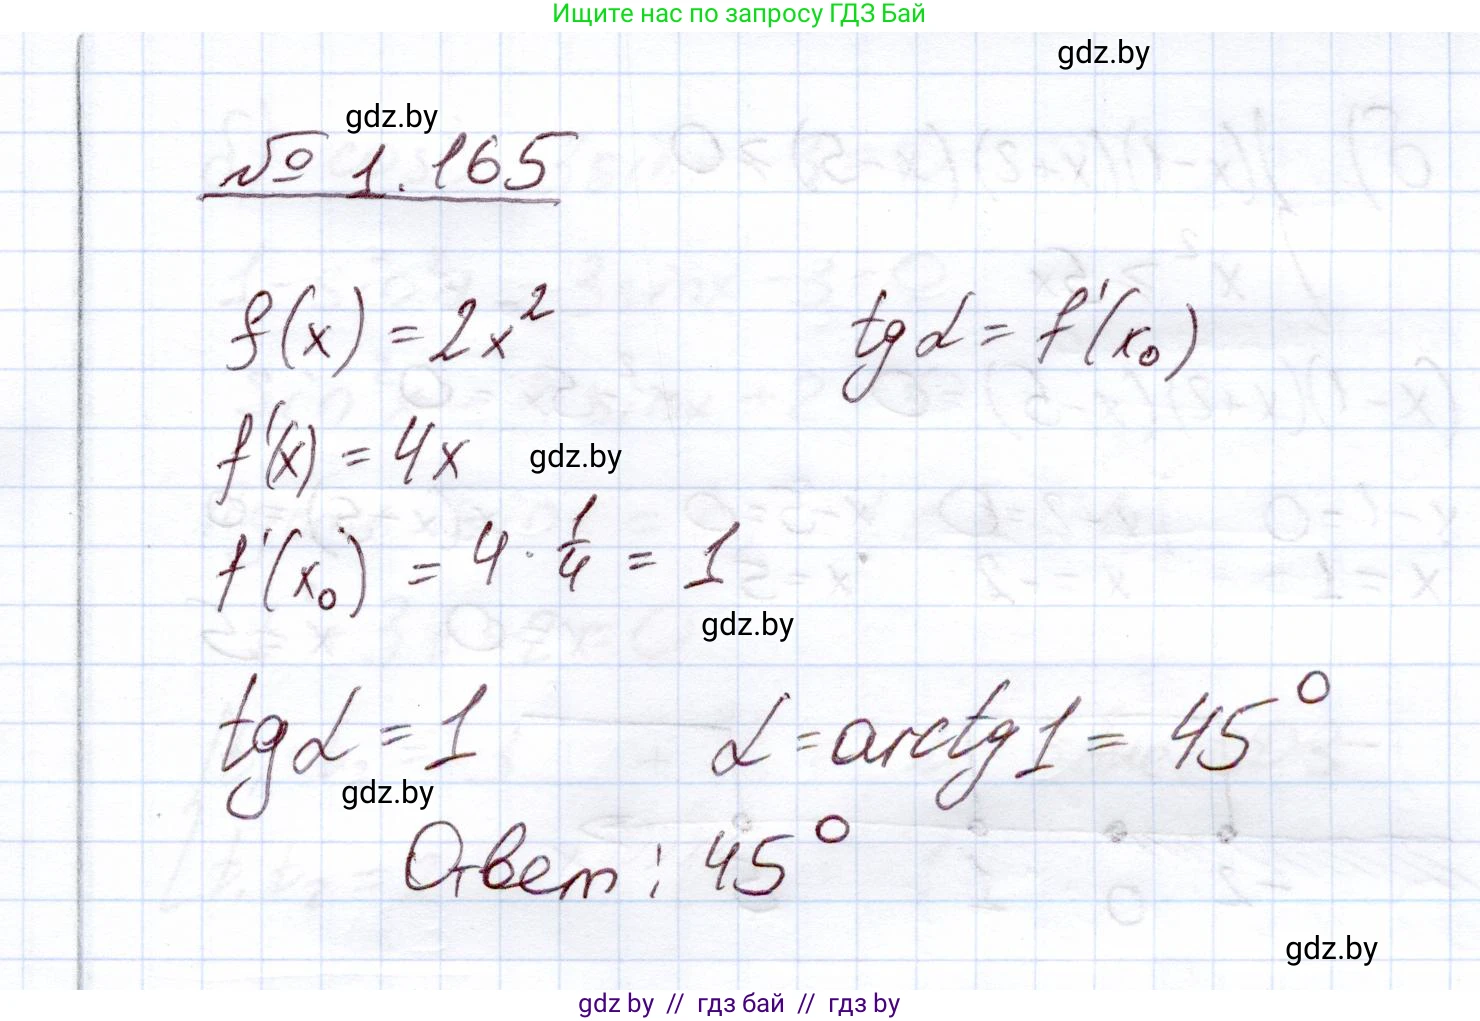 Ищите нас по запросу ГДЗ Бай
gdz.by
gdz.by
№ 1.165
f(x) = 2x² tg α = f'(x₀)
f'(x) = 4x
gdz.by
f'(x₀) = 4 · 1/4 = 1
gdz.by
tg α = 1 α = arctg 1 = 45°
gdz.by
Ответ: 45°
gdz.by
gdz by // гдз бай // гдз by